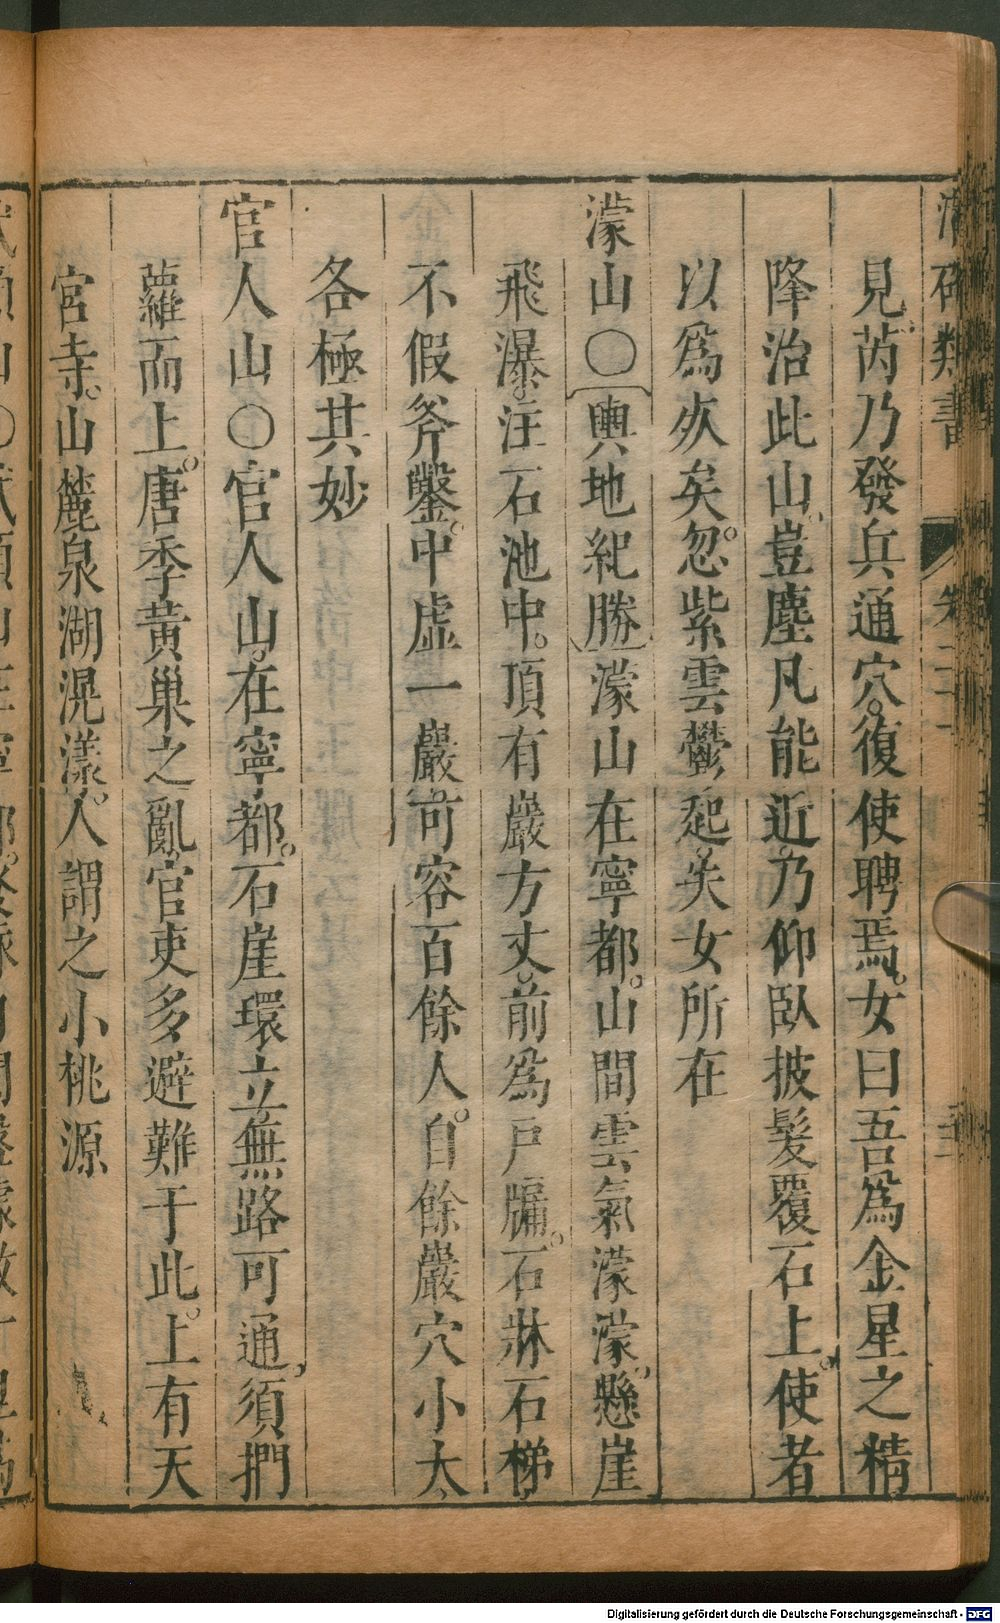 類書
卷二十一
見芮乃發兵通穴。復使聘焉。女曰吾爲金星之精
降治此山。豈塵凡能近。乃仰臥披髮覆石上。使者
以爲夾矣。忽紫雲鬱起。失女所在
濛山○輿地紀勝濛山在寧都。山間雲氣濛濛。懸崖
飛瀑。注石池中。頂有巖方丈。前爲戸牖。石牀石梯
不假斧鑿。中虛一巖。可容百餘人。自餘巖穴小大
各極其妙
官人山○官人山。在寧都。石崖環立無路可通。須捫
蘿而上。唐季黄巢之亂。官吏多避難于此。上有天
宮寺。山麓泉湖滉漾。人謂之小桃源
Digitalisierung gefördert durch die Deutsche Forschungsgemeinschaft - DFG